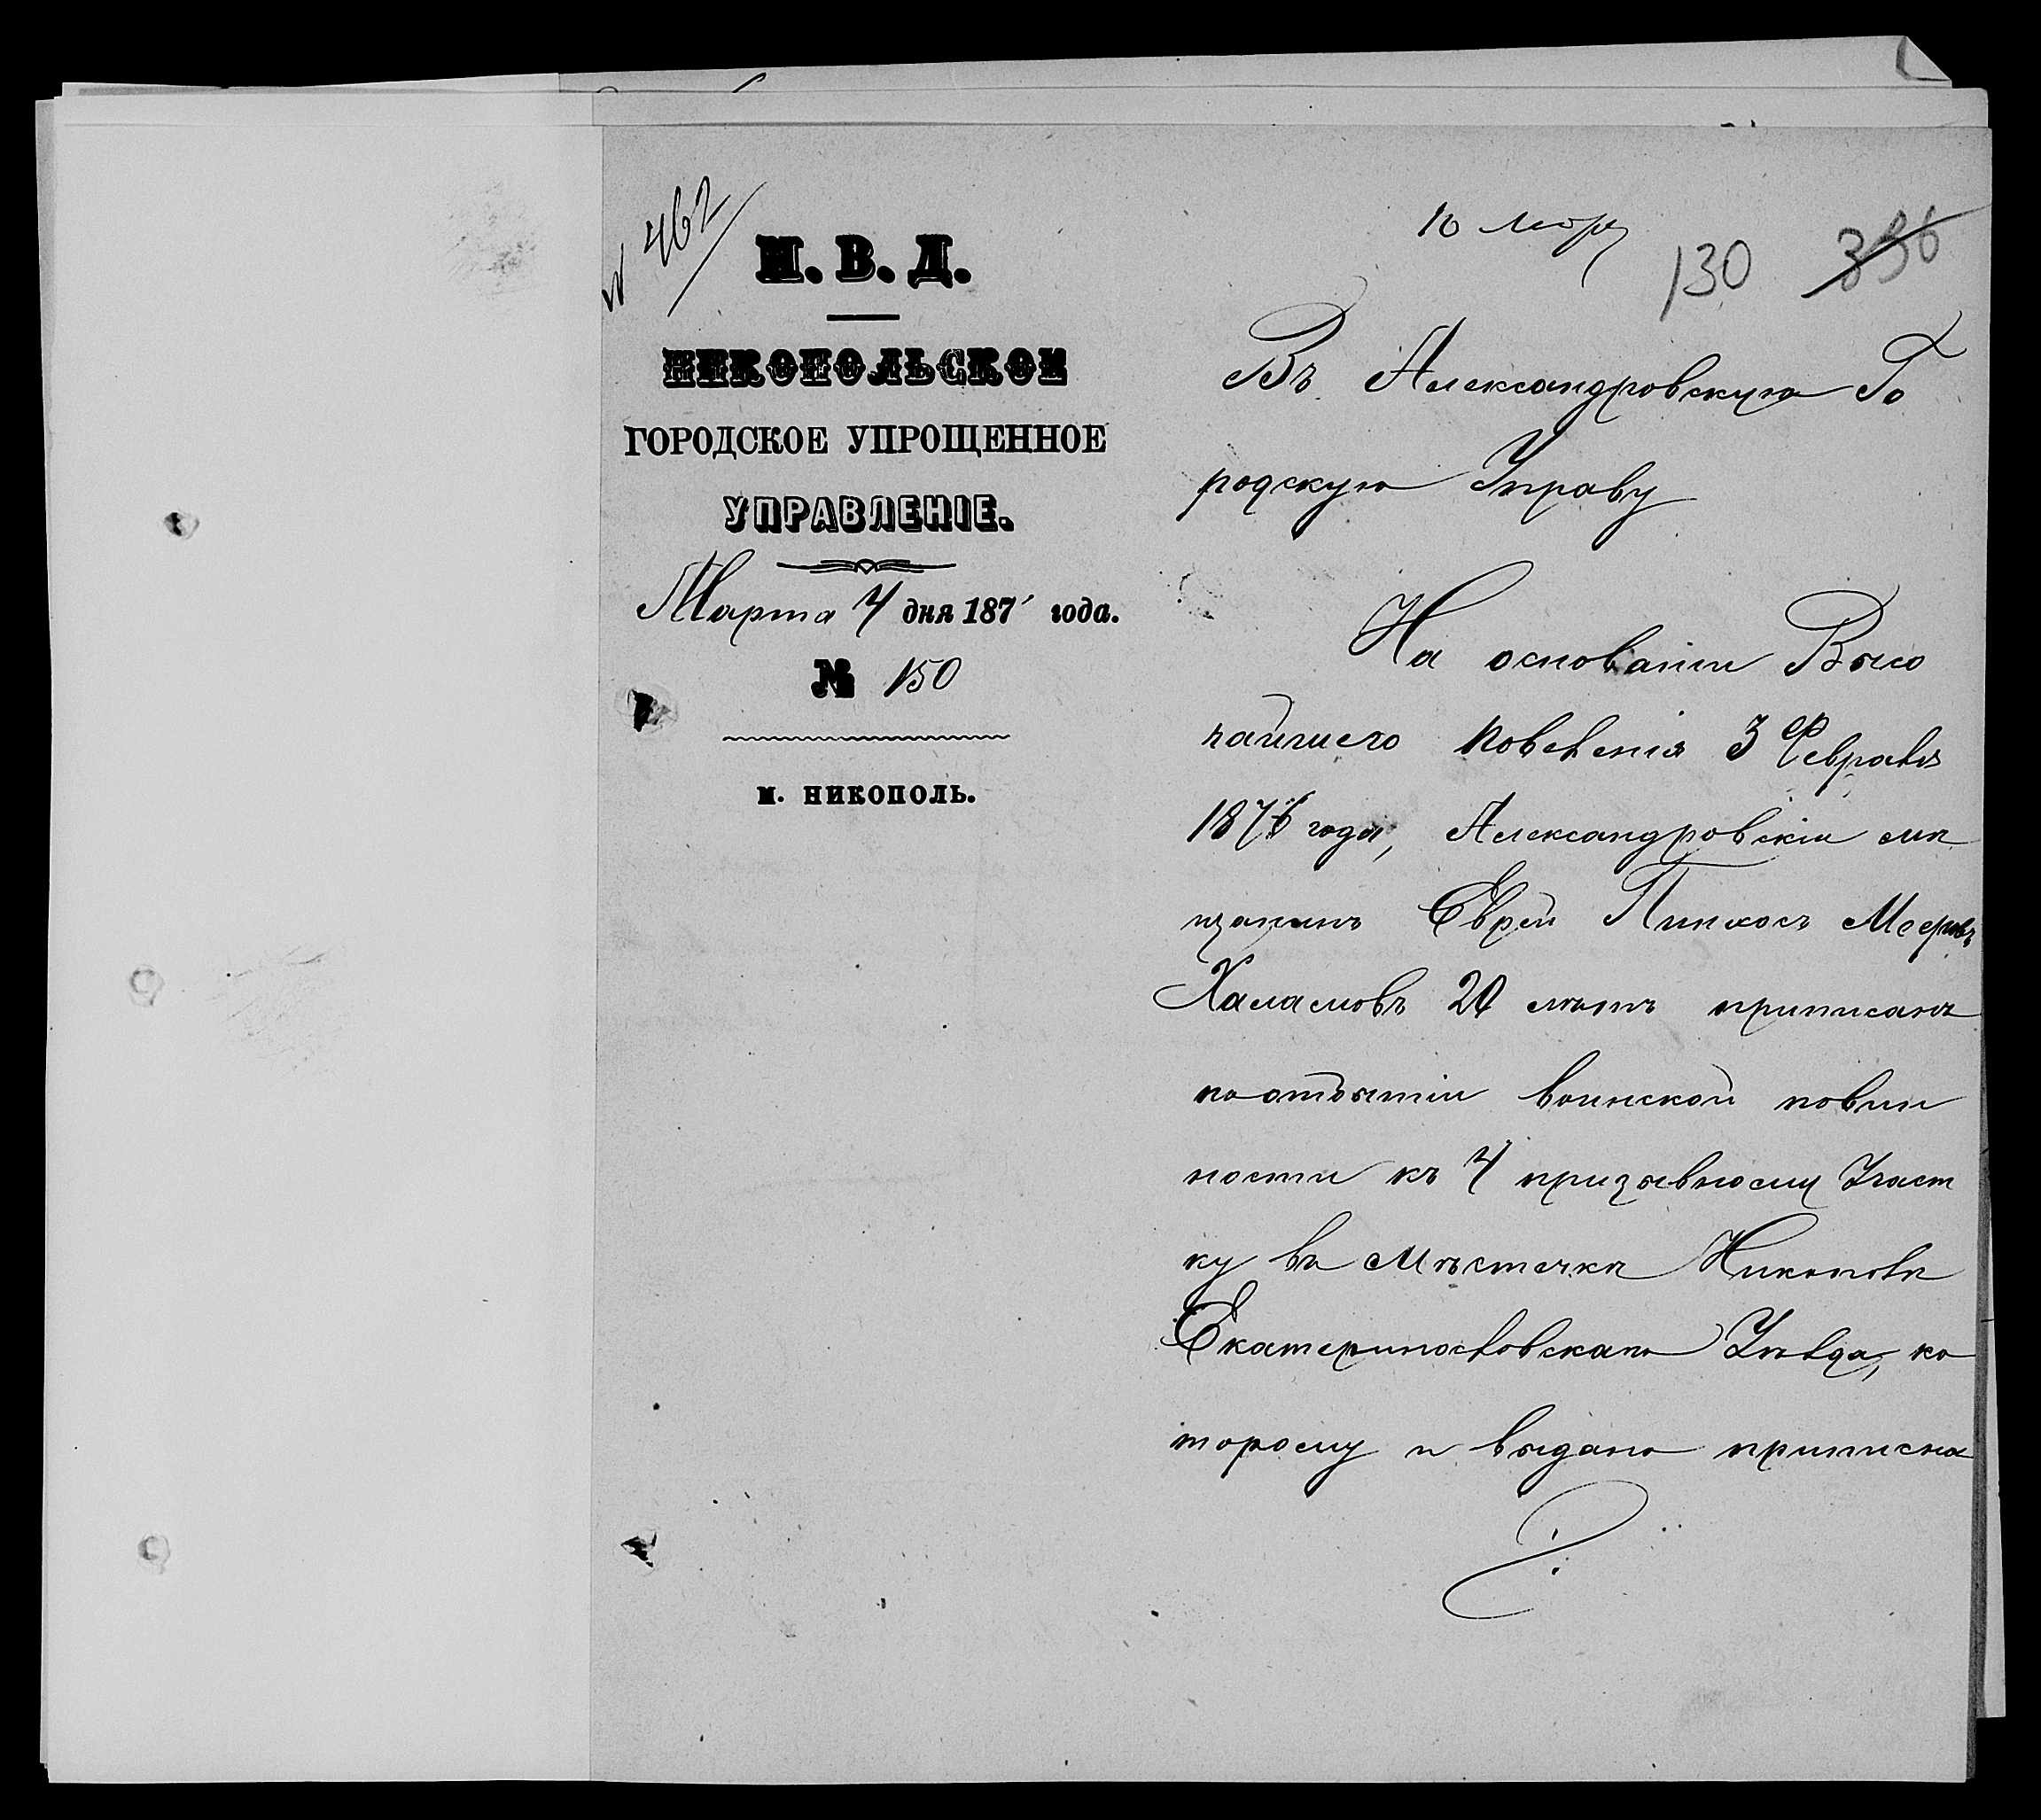 № 462
М. В. Д.
НИКОПОЛЬСКОЕ
ГОРОДСКОЕ УПРОЩЕННОЕ
УПРАВЛЕНІЕ.
Марта 4 дня 187 года.
№ 150
м. НИКОПОЛЬ.
10 Мар
130 396
Въ Александровскую Го
родскую Управу
На основаніи Высо
чайшего повеленія 3 Февраля
1876 года, Александровскій мѣ
щанинъ Еврей Пинхосъ Меер
Халамовъ 20 лѣтъ приписанъ
по отбытіи воинской повин
ности къ 4 призывному Участ
ку въ Мѣстечкѣ Никополѣ
Екатеринославскаго Уѣзда, ко
торому и выдано приписна